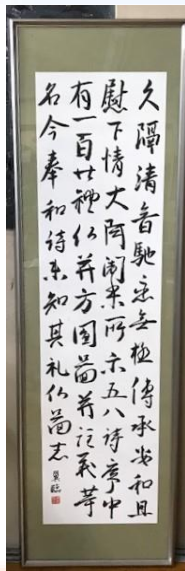 久隔清音馳恋無極傳承安和且
慰下情大阿闍梨所示五八詩序中
有一百廿禮仏并方圓圖并注義等
名今奉和詩未知其礼仏圖志
臨